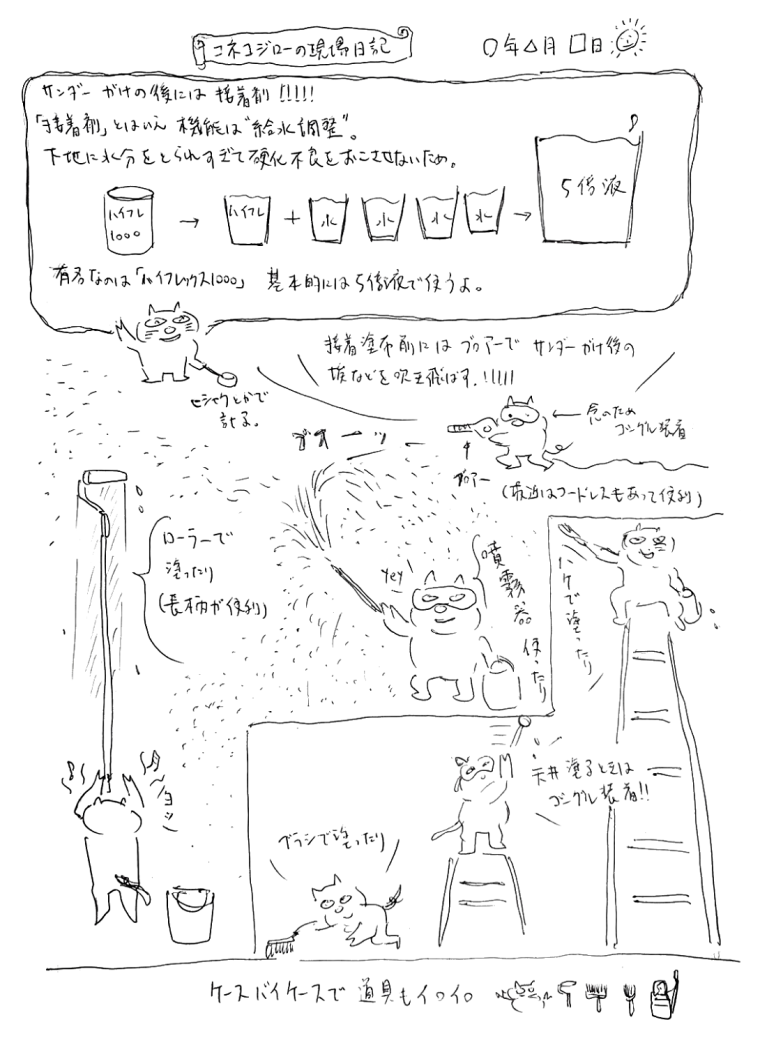 コネコジローの現場日記
〇年△月□日
サンダーがけの後には接着剤!!!!!
「接着剤」とはいえ機能は“給水調整”。
下地に水分をとられすぎて硬化不良をおこさせないため。
ハイフレ
1000
→
ハイフレ
+
水
水
水
水
→
5倍液
有名なのは「ハイフレックス1000」 基本的には5倍液で使うよ。
ヒシャクとかで
計る。
接着塗布前にはブロアーでサンダーがけ後の
埃などを吹き飛ばす.!!!!!
ブオーッ
← 念のため
ゴーグル装着
ブロアー
(最近はコードレスもあって便利)
ローラーで
塗ったり
(長柄が便利)
yey
噴霧器使ったり
ハケで塗ったり
ヨッ
天井塗るときは
ゴーグル装着!!
ブラシで塗ったり
ケースバイケースで道具もイロイロ